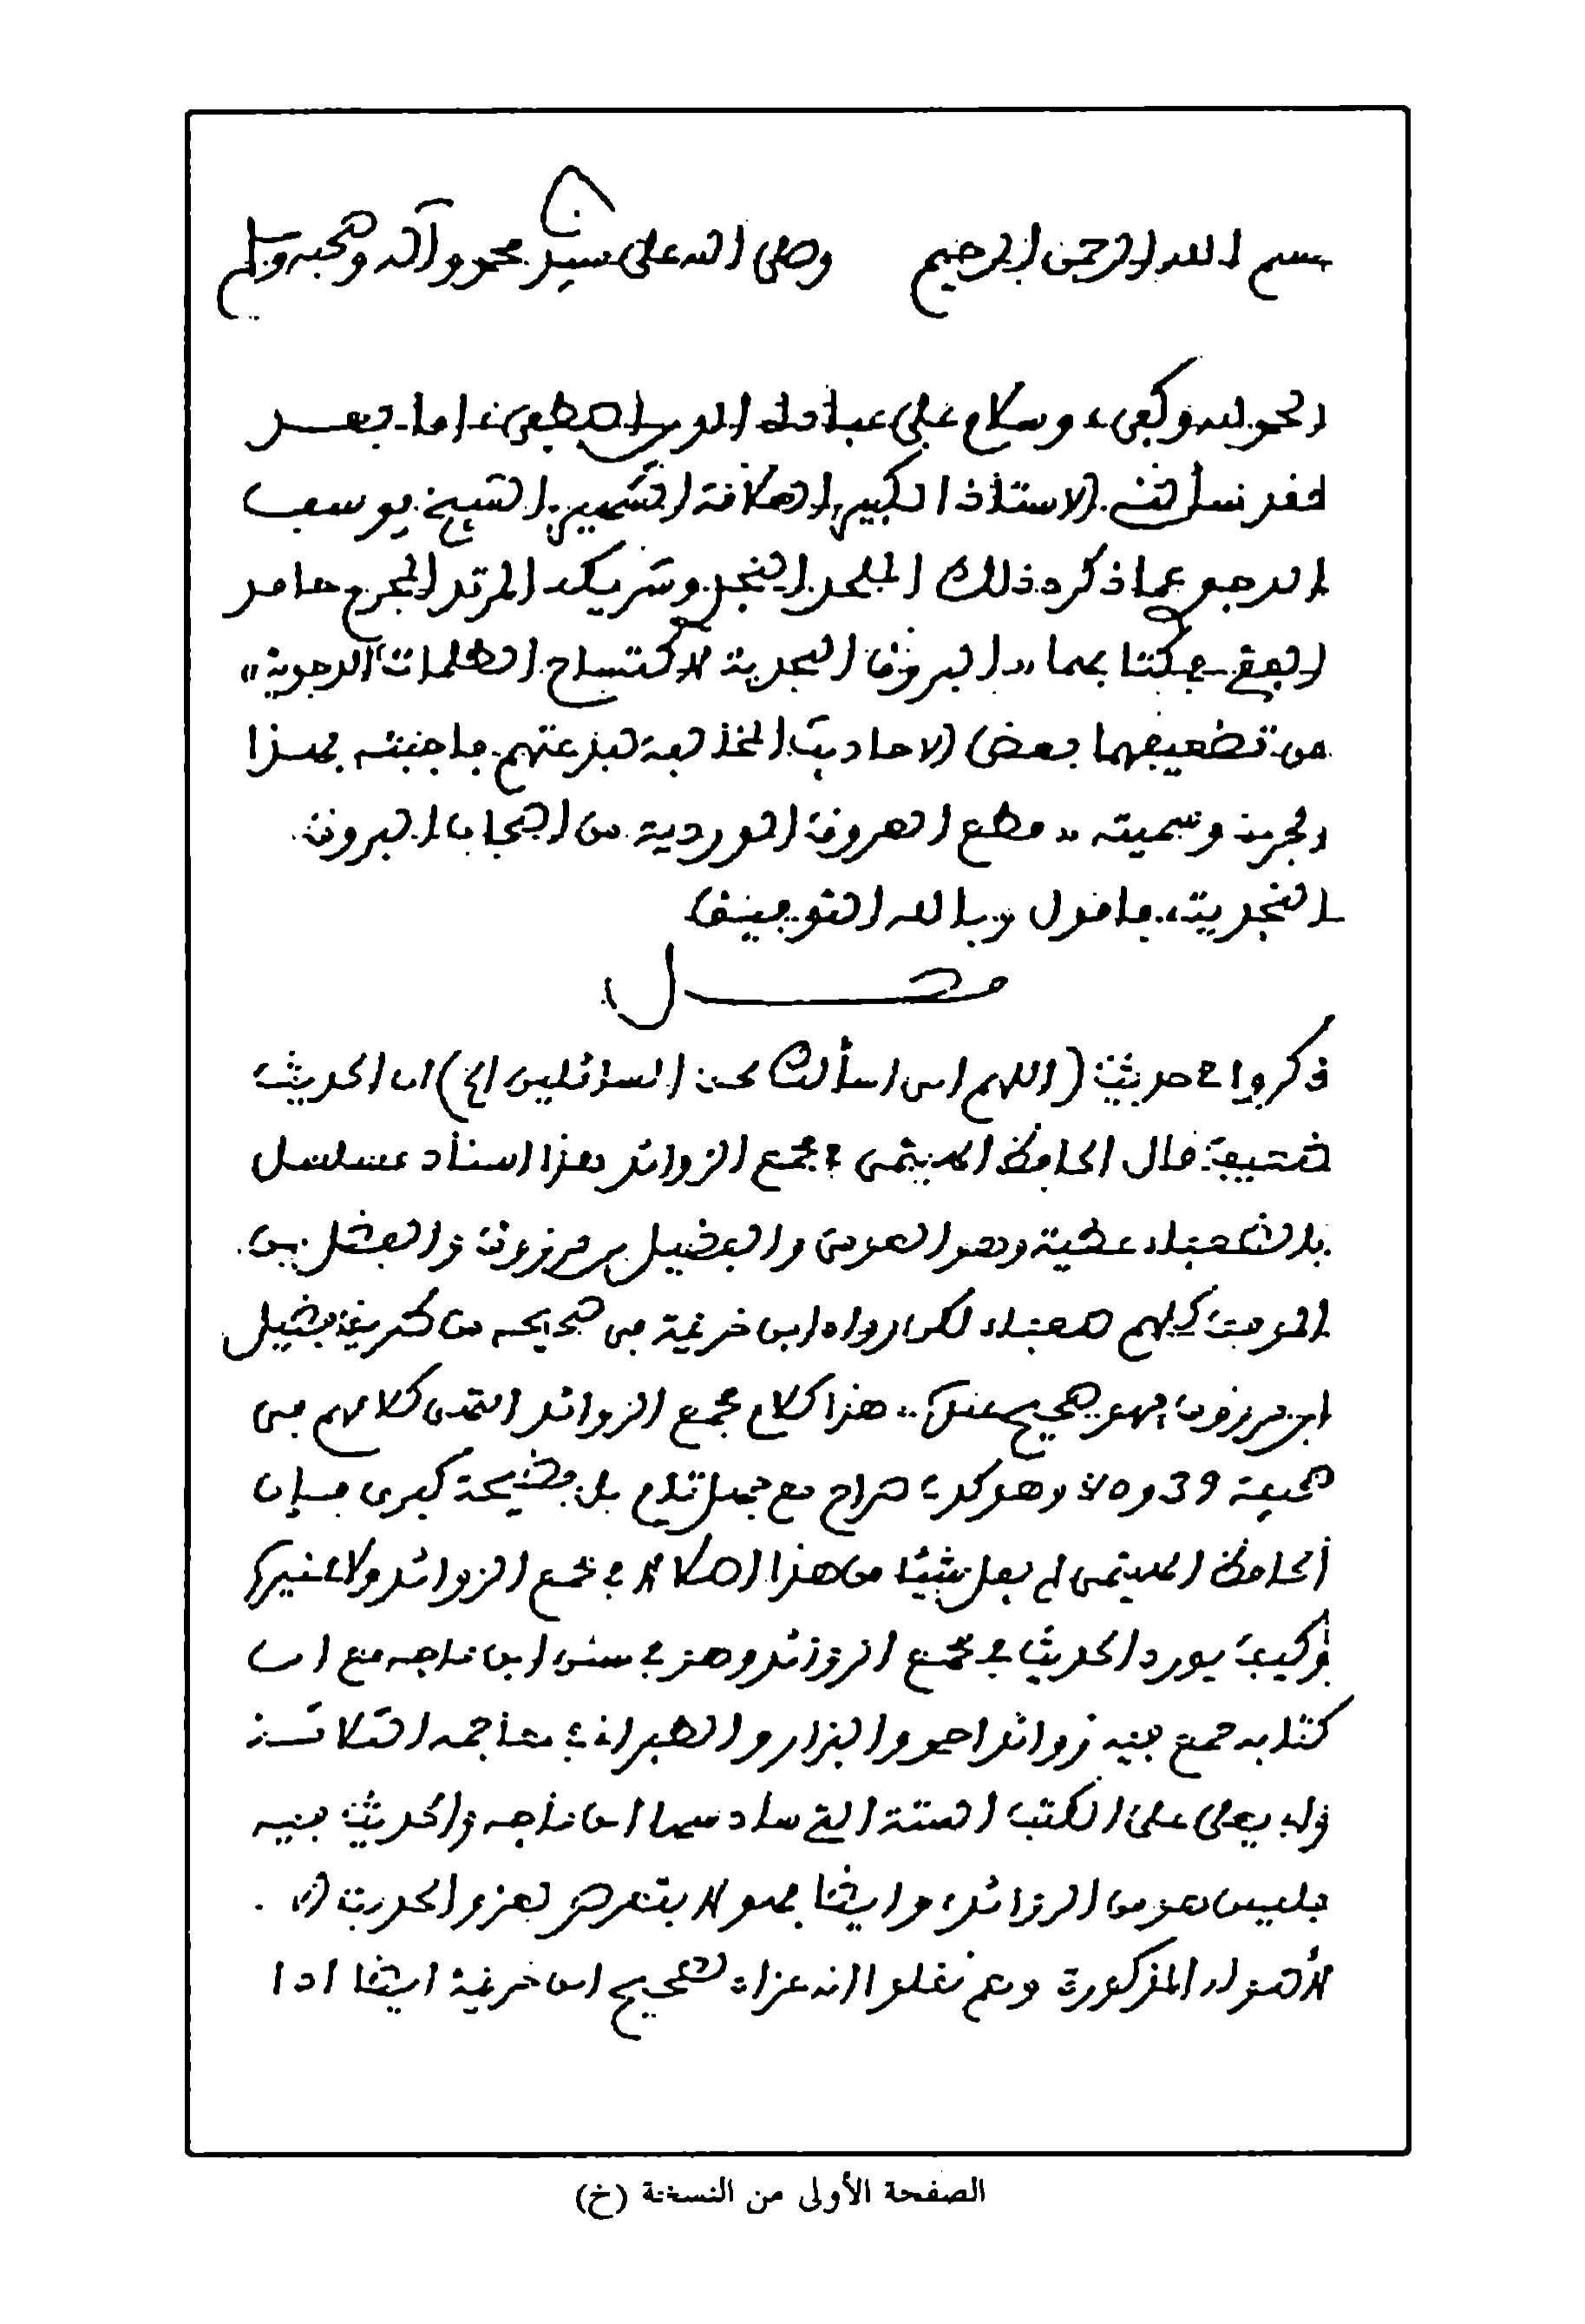 بسم الله الرحمن الرحيم وصلى الله على سيدنا محمد وآله وصحبه وسلم
الحمد لله وكفى، وسلام على عباده الذين اصطفى، اما بعد
فقد سألني الاستاذ الكبير، العلامة الشهير، الشيخ يوسف
الدجوي عما ذكره ذلك الملحد النجدي وشريكه المرتد المجرم حامد
الفقي في كتابهما "البروق النجدية لاكتساح الظلمات الدجوية"
من تضعيفهما بعض الاحاديث المخالفة لبدعتهم فاجبته بهذا
الجزء وسميته "قطع العروق الوردية من صاحب البروق
النجدية، فاقول وبالله التوفيق
فصل
ذكروا في حديث (اللهم اني اسألك بحق السائلين الخ) ان الحديث
ضعيف قال الحافظ الهيثمي في مجمع الزوائد هذا اسناد مسلسل
بالضعفاء عطية وهو العوفي والفضيل بن مرزوق والفضل بن
الموفق كلهم ضعفاء لكن رواه ابن خزيمة في صحيحه من طريق فضيل
ابن مرزوق فهو صحيح عنده. هذا كلام مجمع الزوائد انتهى كلامهم في
صحيفة 39 و 40 وهو كذب صراح مع جهل تام بل فضيحة كبرى فإن
الحافظ الهيثمي لم يقل شيئا من هذا اصلا لا في مجمع الزوائد ولا غيره
وكيف يورد الحديث في مجمع الزوائد وهو في سنن ابن ماجه مع ان
كتابه جمع فيه زوائد احمد والبزار والطبراني في معاجمه الثلاثة
وابي يعلى على الكتب الستة التي سادسها ابن ماجه والحديث فيه
فليس هو من الزوائد، وايضا فهو لا يتعرض لعزو الحديث الا
للاصول المذكورة وهم نقلوا انه عزاه لصحيح ابن خزيمة ايضا اذا
الصفحة الأولى من النسخة (خ)